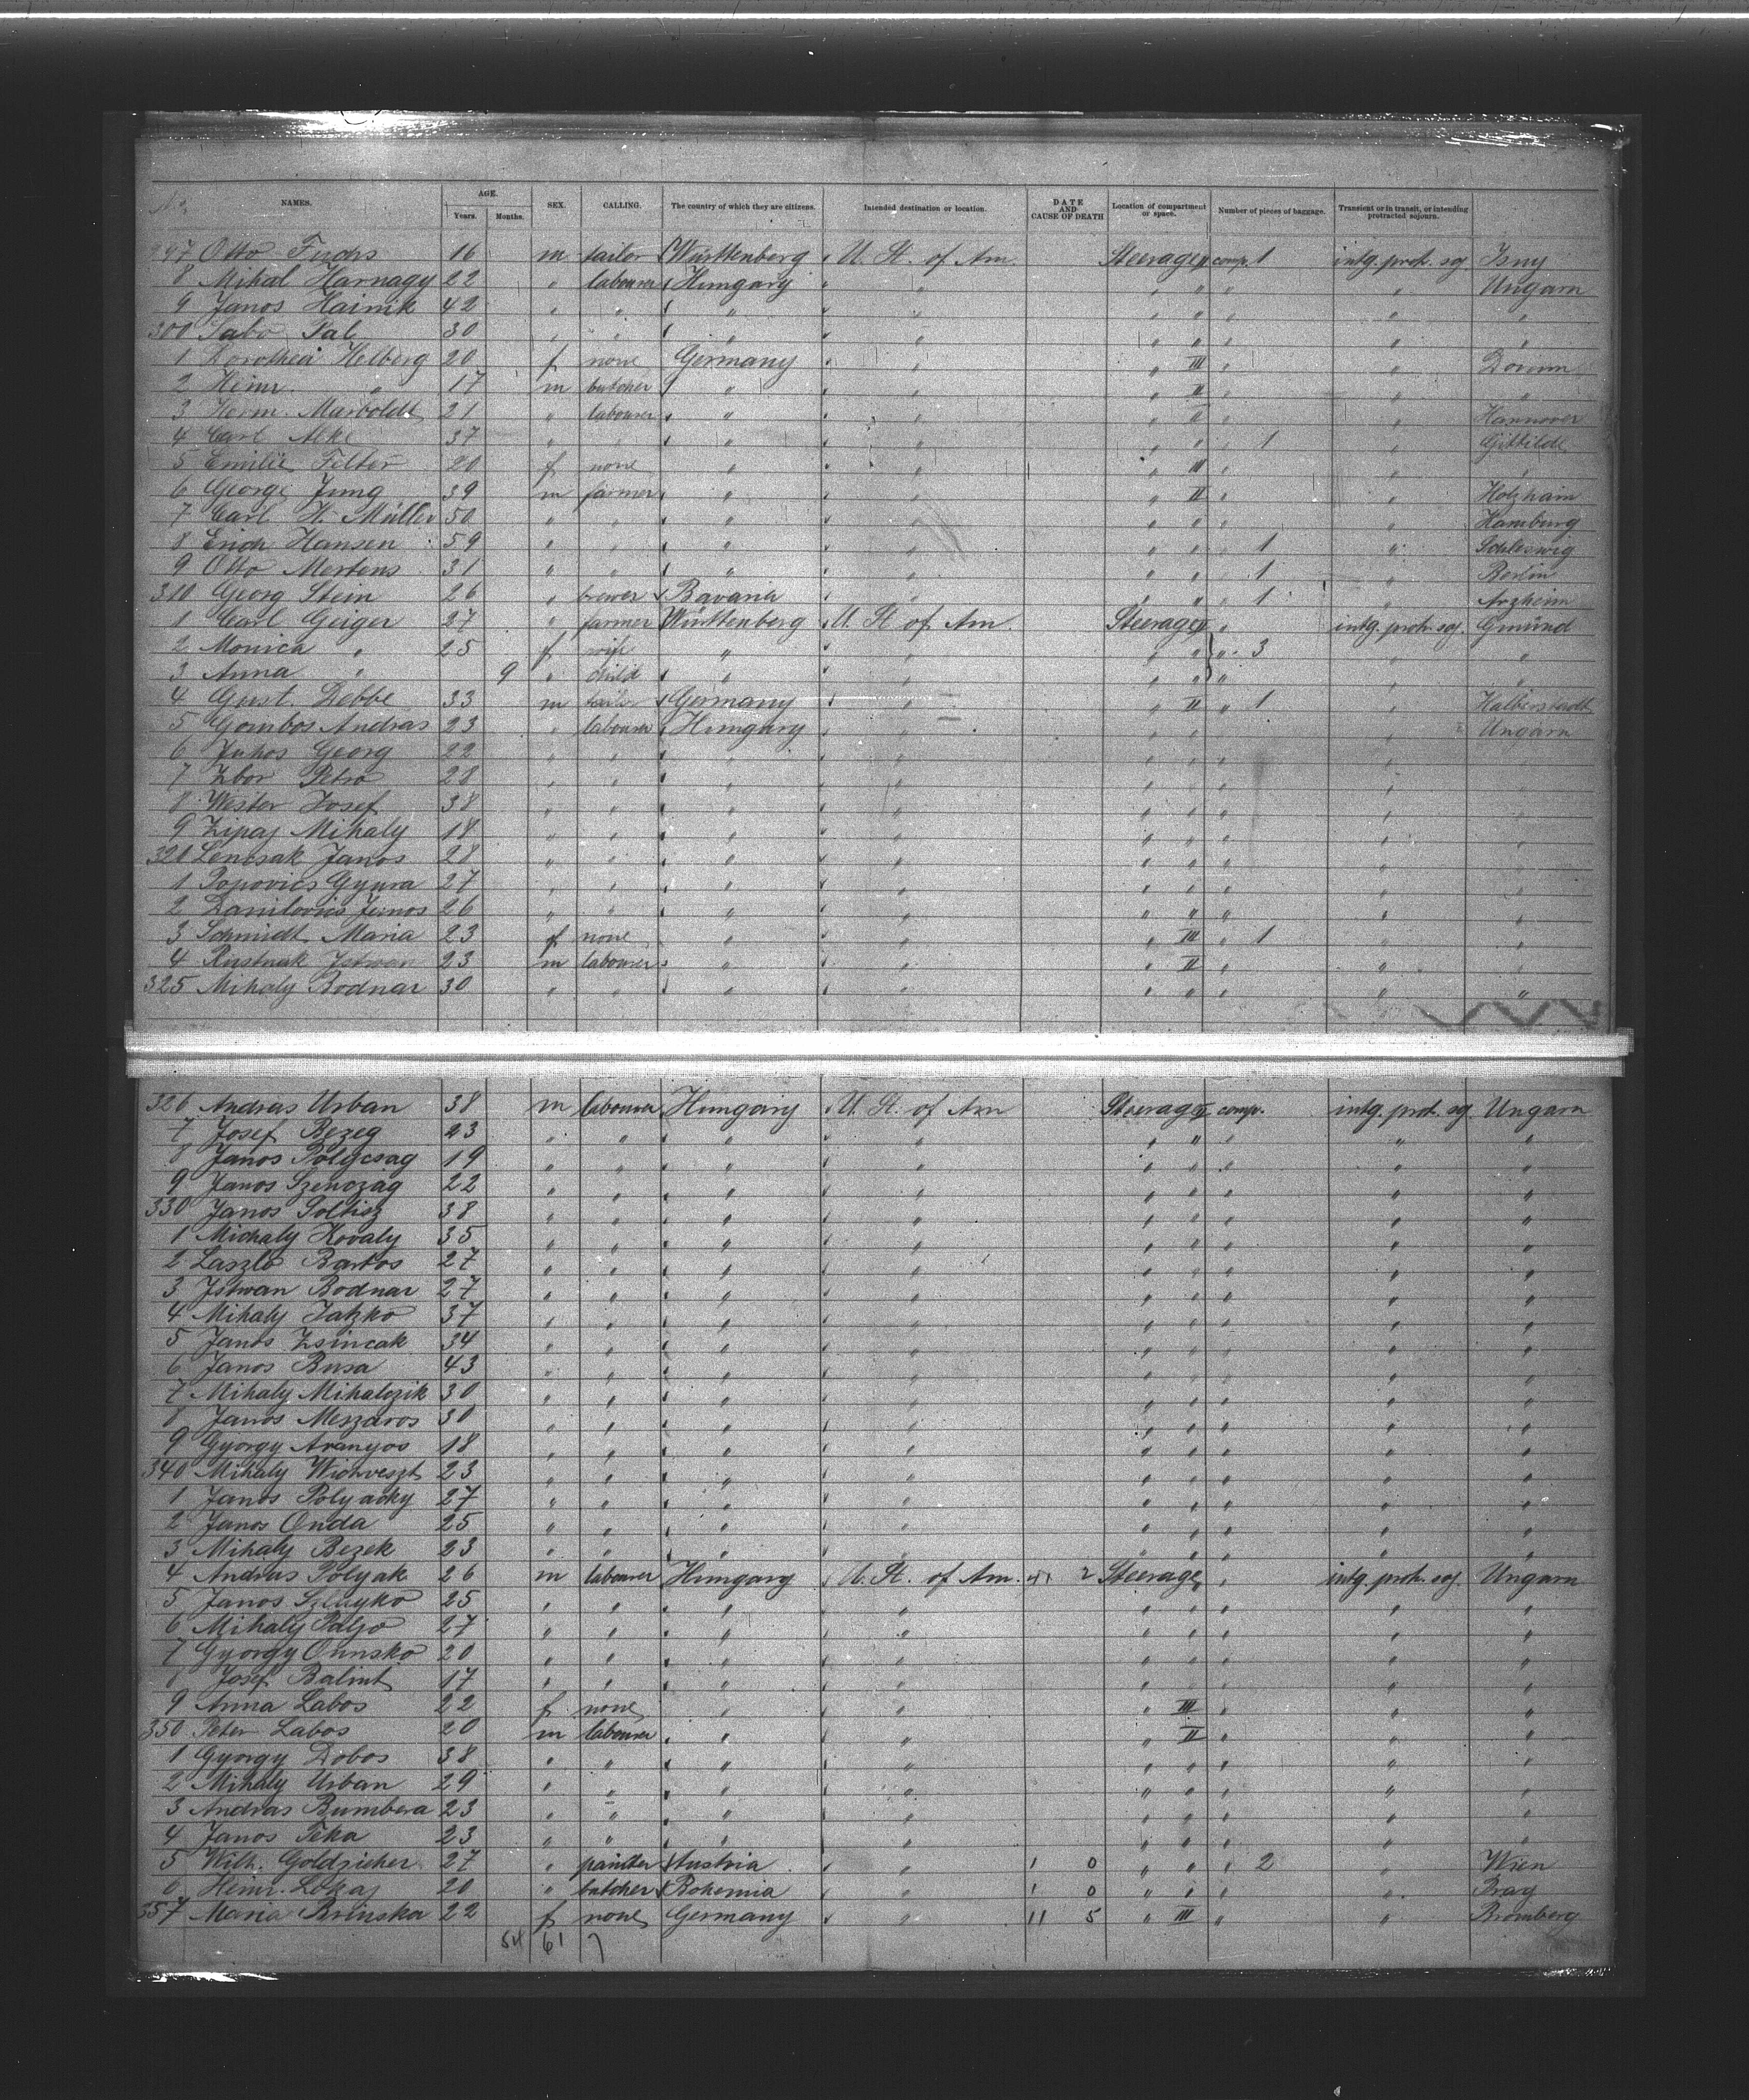 No. NAMES. AGE. Years. Months. SEX. CALLING. The country of which they are citizens. Intended destination or location. DATE AND CAUSE OF DEATH Location of compartment or space. Number of pieces of baggage. Transient or in transit, or intending protracted sojourn.
297 Otto Fuchs 16 m tailor Württenberg U. St. of Am. Steerage II comp. 1 intg. protr. soj Isny
8 Mihal Harnagy 22 " labourer Hungary " " " " " Ungarn
9 Janos Hainik 42 " " " " " " " " "
300 Sabo Pal 30 " " " " " " " " "
1 Dorothea Helberg 20 f none Germany " " III " " Dorum
2 Heinr. " 17 m butcher " " " II " " "
3 Herm. Marboldt 21 " labourer " " " II " " Hannover
4 Carl Alke 37 " " " " " " " 1 " Gittilde
5 Emilie Felter 20 f none " " " III " " "
6 George Jung 39 m farmer " " " II " " Holzhain
7 Carl H. Müller 50 " " " " " " " " Hamburg
8 Erich Hansen 59 " " " " " " " 1 " Schleswig
9 Otto Mertens 31 " " " " " " " 1 " Berlin
310 Georg Stein 26 " brewer Bavaria " " " " 1 " Arzheim
1 Carl Geiger 27 " farmer Württenberg U. St. of Am. Steerage " intg. protr. soj. Gmünd
2 Monica " 25 f wife " " " " " 3 " "
3 Anna " 9 " child " " " " " " "
4 Gust. Debbe 33 m tailor Germany " " II " 1 " Halberstadt
5 Gombos Andras 23 " labourer Hungary " " " " " Ungarn
6 Juhos Georg 22 " " " " " " " " "
7 Zbor Petro 28 " " " " " " " " "
8 Wester Josef 38 " " " " " " " " "
9 Zipaj Mihaly 18 " " " " " " " " "
320 Lencsak Janos 28 " " " " " " " " "
1 Popovics Gyura 27 " " " " " " " " "
2 Danilovics Janos 26 " " " " " " " " "
3 Schmidt Maria 23 f none " " " III " 1 " "
4 Rustnak Istwan 23 m labourer " " " II " " "
325 Mihaly Bodnar 30 " " " " " " " " "
326 Andras Urban 38 m labourer Hungary U. St. of Am Steerage II comp. intg. prot. soj Ungarn
7 Josef Bezeg 23 " " " " " " " " "
8 Janos Polycsag 19 " " " " " " " " "
9 Janos Szenczag 22 " " " " " " " " "
330 Janos Soltisz 38 " " " " " " " " "
1 Michaly Kovaly 35 " " " " " " " " "
2 Laszlo Bartos 27 " " " " " " " " "
3 Istwan Bodnar 27 " " " " " " " " "
4 Mihaly Jatzko 37 " " " " " " " " "
5 Janos Zsincak 34 " " " " " " " " "
6 Janos Busa 43 " " " " " " " " "
7 Mihaly Mihalczik 30 " " " " " " " " "
8 Janos Meszaros 30 " " " " " " " " "
9 Gyorgy Aranyos 18 " " " " " " " " "
340 Mihaly Wichveszt 23 " " " " " " " " "
1 Janos Polyacky 27 " " " " " " " " "
2 Janos Onda 25 " " " " " " " " "
3 Mihaly Bezek 23 " " " " " " " " "
4 Andras Polyak 26 m labourer Hungary U. St. of Am. 41 2 Steerage " intg. protr. soj. Ungarn
5 Janos 25 " " " " " " " " "
6 Mihaly Paljo 27 " " " " " " " " "
7 Gyorgy Onnsko 20 " " " " " " " " "
8 Josef Balint 17 " " " " " " " " "
9 Anna Labos 22 f none " " " III " " "
350 Peter Labos 20 m labourer " " " II " " "
1 Gyorgy Dobos 38 " " " " " " " " "
2 Mihaly Urban 29 " " " " " " " " "
3 Andras Bumbera 23 " " " " " " " " "
4 Janos Teka 23 " " " " " " " " "
5 Wilh. Goldzieher 27 " painter Austria " " 1 0 " " " 2 " Wien
6 Heinr. Lokaj 20 " butcher Bohemia " " 1 0 " " " " Prag
357 Maria Brinska 22 f none Germany " " 11 5 " III " " Bromberg
54 61 7